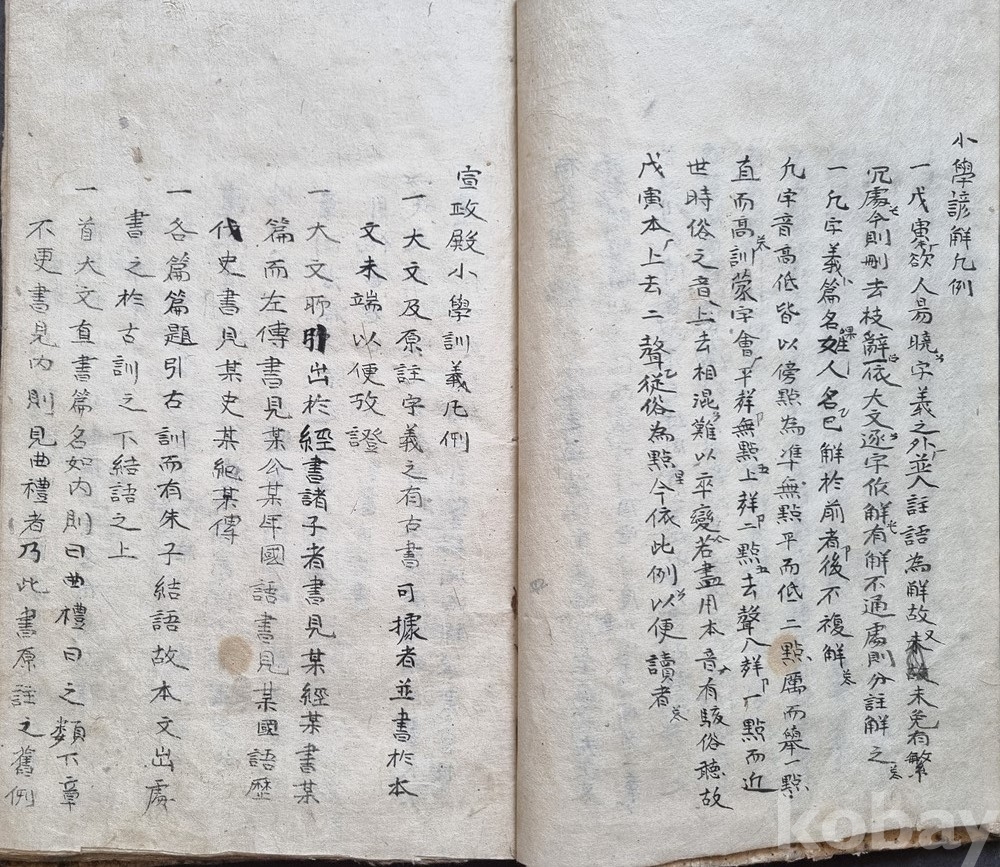 小學諺解凡例
一戊寅本欲人易曉字義之外並入註語為解故未免有繁
冗處今則刪去枝辭一依大文逐字依解有解不通處則分註解之
一凡字義篇名姓人名已解於前者後不複解
凡字音高低皆以傍點為準無點平而低二點厲而舉一點
直而高訓蒙字會平聲無點上聲二點去聲入聲一點而近
世時俗之音上去相混難以卒變若盡用本音有駭俗聽故
戊寅本上去二聲從俗為點今依此例以便讀者
宣政殿小學訓義凡例
一大文及原註字義之有古書可據者並書於本
文末端以便攷證
一大文所引出於經書諸子者書見某經某書某
篇而左傳書見某公某年國語書見某國語歷
代史書見某史某紀某傳
一各篇篇題引古訓而有朱子結語故本文出處
書之於古訓之下結語之上
一首大文直書篇名如內則曰曲禮曰之類下章
不更書見內則見曲禮者乃此書原註之舊例
kobay